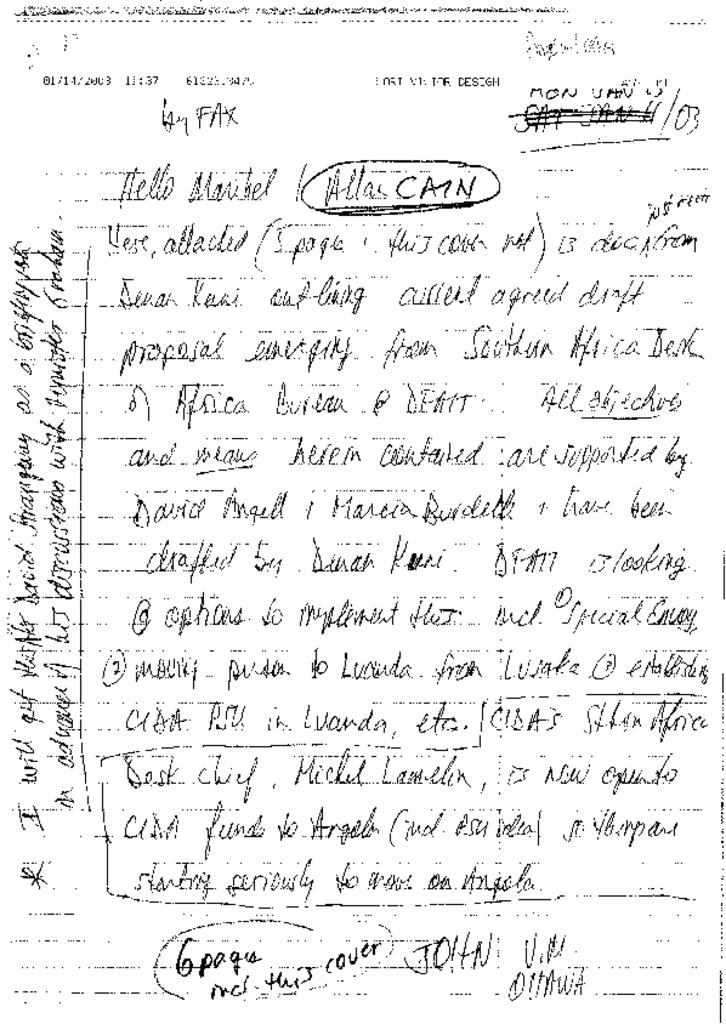 01/14/2003 11:37
by FAX
MON JAN 13
/03
Hello Maribel / Allan CAIN
Here, attached (5 pages + this cover not) is docn from
outlining current agreed draft
proposal emerging from Southern Africa Desk
of Africa Bureau @ DFAIT. All objectives
and means herein contained are supported by
David Angell + Marcia Burdette + have been
drafted by DFAIT is looking
@ options to implement this: incl. ① Special Envoy
② moving person to Luanda from Lusaka ③ establishing
CIDA PSU in Luanda, etc. / CIDA's Sthrn Africa
Desk Chief, Michel Lemelin, is now open to
CIDA funds to Angola (incl. PSU idea)
starting seriously to move on Angola.
6 pages
incl. this cover
JOHN
OTTAWA
* I will get this to David as a briefing
in advance of his discussions with Minister Graham.